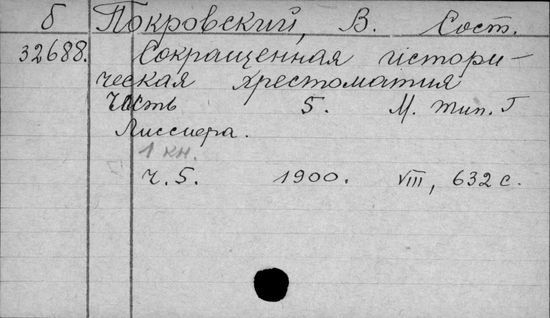 б Покровский, В. Сост.
32688. Сокращенная истори-
ческая хрестоматия
Часть 5. М. тип. Г
Лисснера.
1 кн.
Ч. 5. 1900. VIII, 632 с.